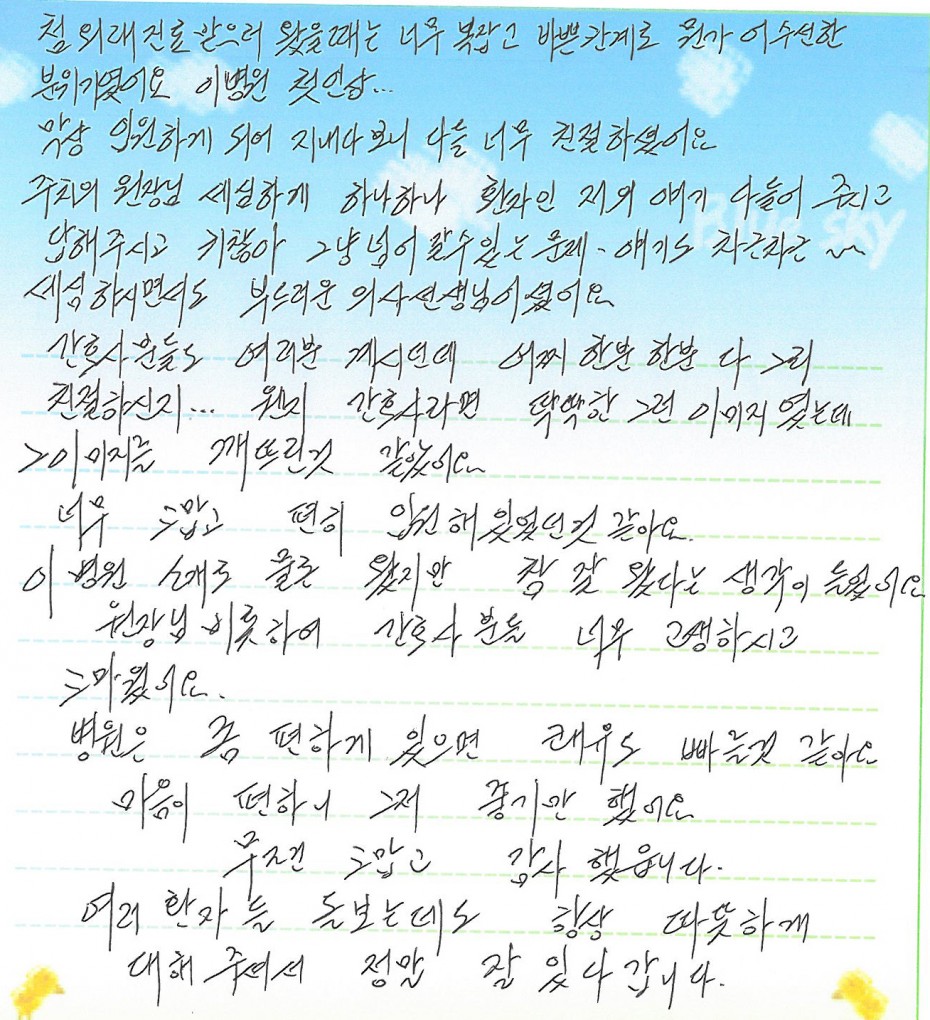 첨 외래진료 받으러 왔을때는 너무 복잡고 바쁜관계로 뭔가 어수선한
분위기였어요 이병원 첫인상...
막상 입원하게 되어 지내다보니 다들 너무 친절하셨어요
주치의 원장님 세심하게 하나하나 환자인 저의 얘기 다들어 주시고
답해주시고 귀찮아 그냥 넘어갈수있는 문제·얘기도 차근차근~~
Blue sky
세심하시면서도 부드러운 의사선생님이셨어요
간호사분들도 여러분 계시던데 어찌 한분 한분 다 그리
친절하신지... 왠지 간호사라면 딱딱한 그런 이미지였는데
그이미지를 깨뜨린것 같았어요
너무 고맙고 편히 입원해있었던것 같아요.
이 병원 소개로 물론 왔지만 참 잘 왔다는 생각이 들었어요
원장님 비롯하여 간호사분들 너무 고생하시고
고마웠어요.
병원은 좀 편하게 있으면 쾌유도 빠를것 같아요
마음이 편하니 그저 좋기만 했어요
무조건 고맙고 감사했읍니다.
여러 환자들 돌보는데도 항상 따뜻하게
대해 주셔서 정말 잘 있다 갑니다.